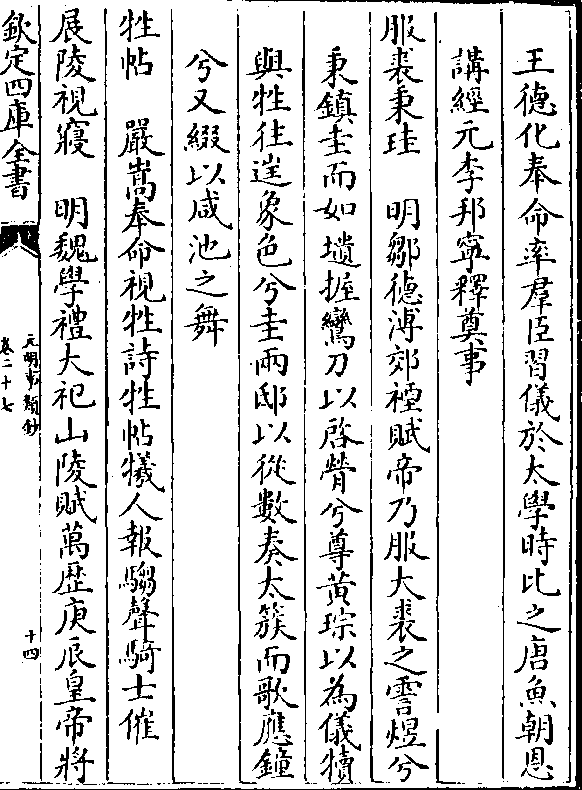 王徳化奉命率羣臣習儀於太學時比之唐魚朝恩
講經元李邦寧釋奠事
服裘秉珪　明鄒徳溥郊禋賦帝乃服大裘之霅煜兮
秉鎮圭而如壝握鸞刀以啓膋兮尊黄琮以為儀犢
與牲往逞象色兮圭兩邸以從數奏太簇而歌應鐘
兮又綴以咸池之舞
牲帖　嚴嵩奉命視牲詩牲帖犧人報騶聲騎士催
展陵視寢　明魏學禮大祀山陵賦萬歴庚辰皇帝將
欽定四庫全書
元明事類鈔
卷二十七
十四